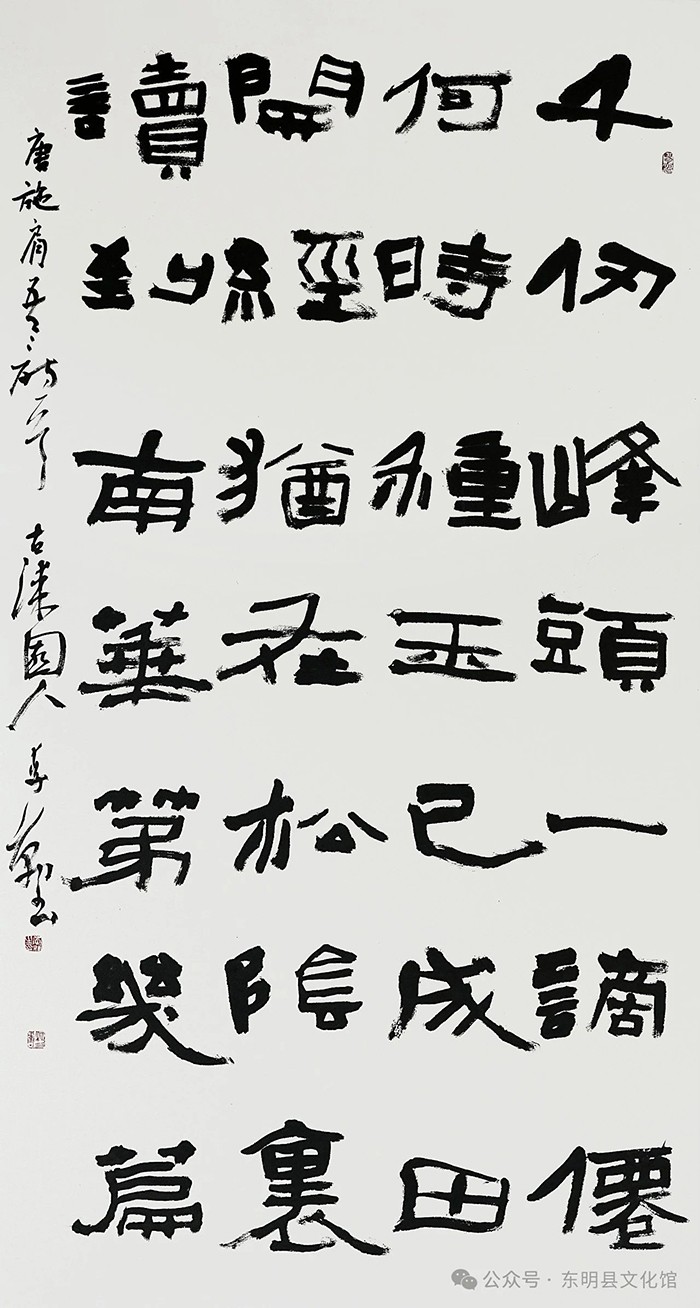 千仞峰頭一謫僊
何時種玉已成田
開經猶在松陰裏
讀到南華第幾篇
唐施肩吾詩一首 古漆園人
公众号 · 东明县文化馆